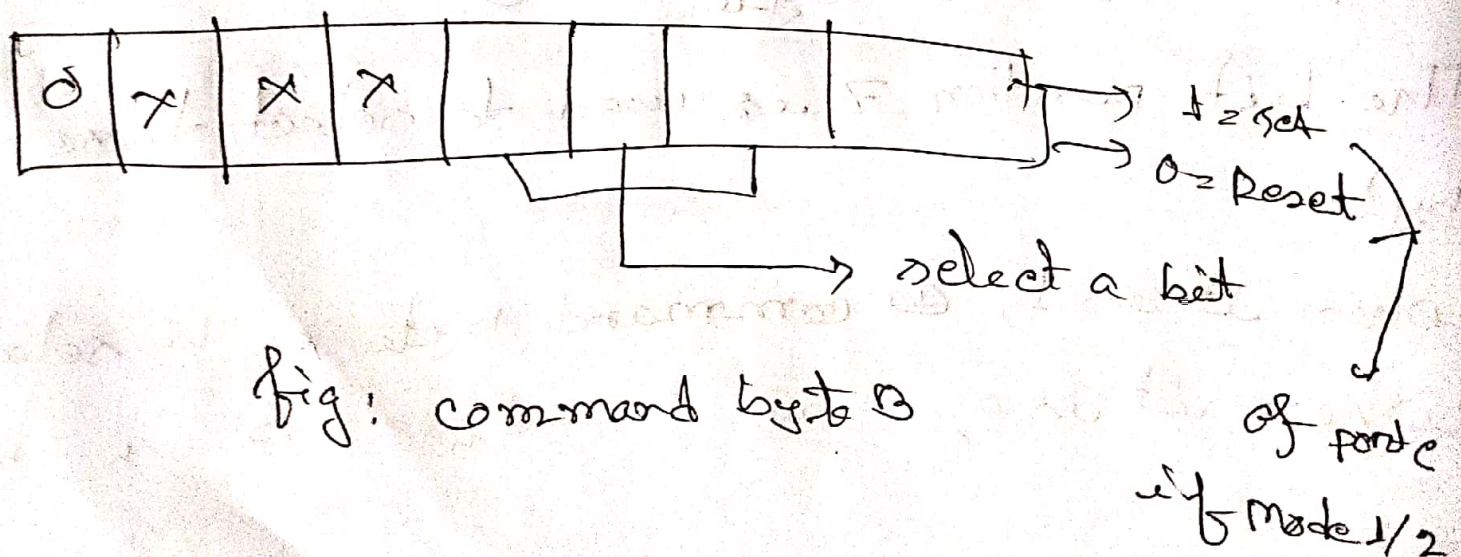 0 x x x
1 = Set
0 = Reset
select a bit
fig: command byte B
of port c
if Mode 1/2